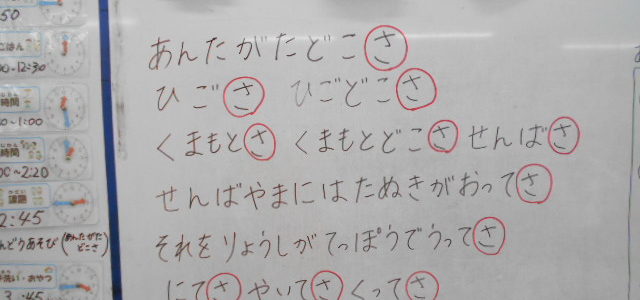 あんたがたどこさ
ひごさ ひごどこさ
くまもとさ くまもとどこさ せんばさ
せんばやまにはたぬきがおってさ
それをりょうしがてっぽうでうってさ
にてさ やいてさ くってさ
50
ごはん
00~12:30
時間
0~1:00
時間
00~2:20
課題
2:45
んどうあそび(あんたがたどこさ)
洗い・おやつ
3:45